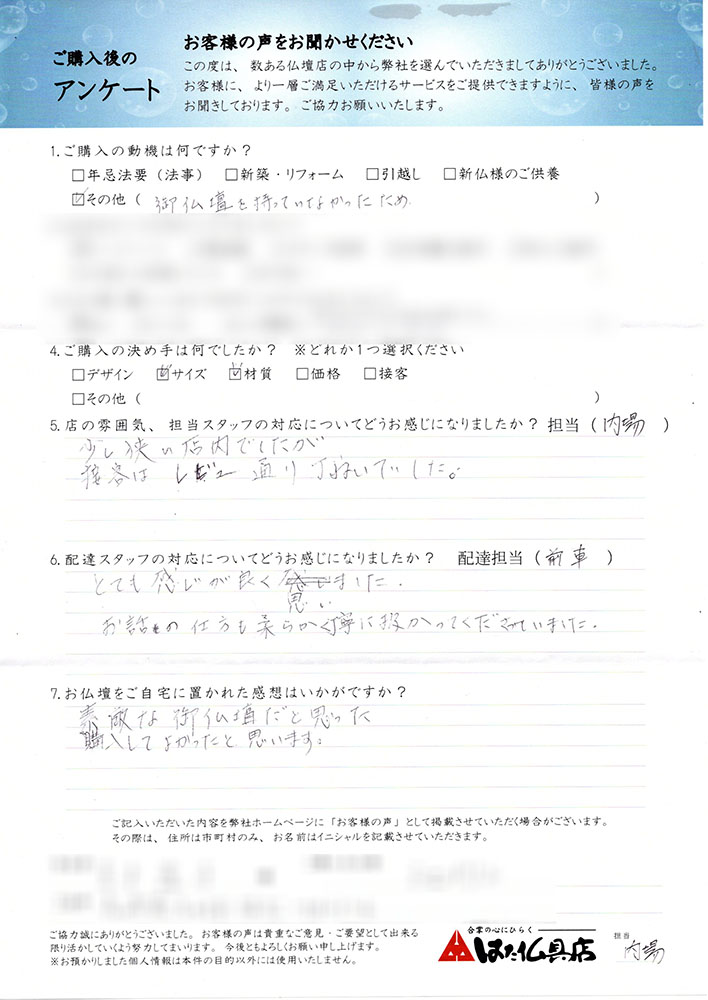 ご購入後の
アンケート
お客様の声をお聞かせください
この度は、数ある仏壇店の中から弊社を選んでいただきましてありがとうございました。
お客様に、より一層ご満足いただけるサービスをご提供できますように、皆様の声を
お聞きしております。ご協力お願いいたします。
1.ご購入の動機は何ですか?
□年忌法要(法事) □新築・リフォーム □引越し □新仏様のご供養
☑その他( 御仏壇を持っていなかったため )
4.ご購入の決め手は何でしたか? ※どれか1つ選択ください
□デザイン ☑サイズ ☑材質 □価格 □接客
□その他( )
5.店の雰囲気、担当スタッフの対応についてどうお感じになりましたか?担当(内場)
少し狭い店内でしたが
接客は レビュー通り丁ねいでした。
6.配達スタッフの対応についてどうお感じになりましたか? 配達担当(前車)
とても感じが良く感じました.
思い
お話の仕方も柔らかく丁寧に扱かってくださっていました.
7.お仏壇をご自宅に置かれた感想はいかがですか?
素敵な御仏壇だと思った
購入してよかったと思います.
ご記入いただいた内容を弊社ホームページに「お客様の声」として掲載させていただく場合がございます。
その際は、住所は市町村のみ、お名前はイニシャルを記載させていただきます。
ご協力誠にありがとうございました。お客様の声は貴重なご意見・ご要望として出来る
限り活かしていくよう努力してまいります。今後ともよろしくお願い申し上げます。
※お預かりしました個人情報は本件の目的以外には使用いたしません。
合掌の心にひらく
はた仏具店
担当
内場